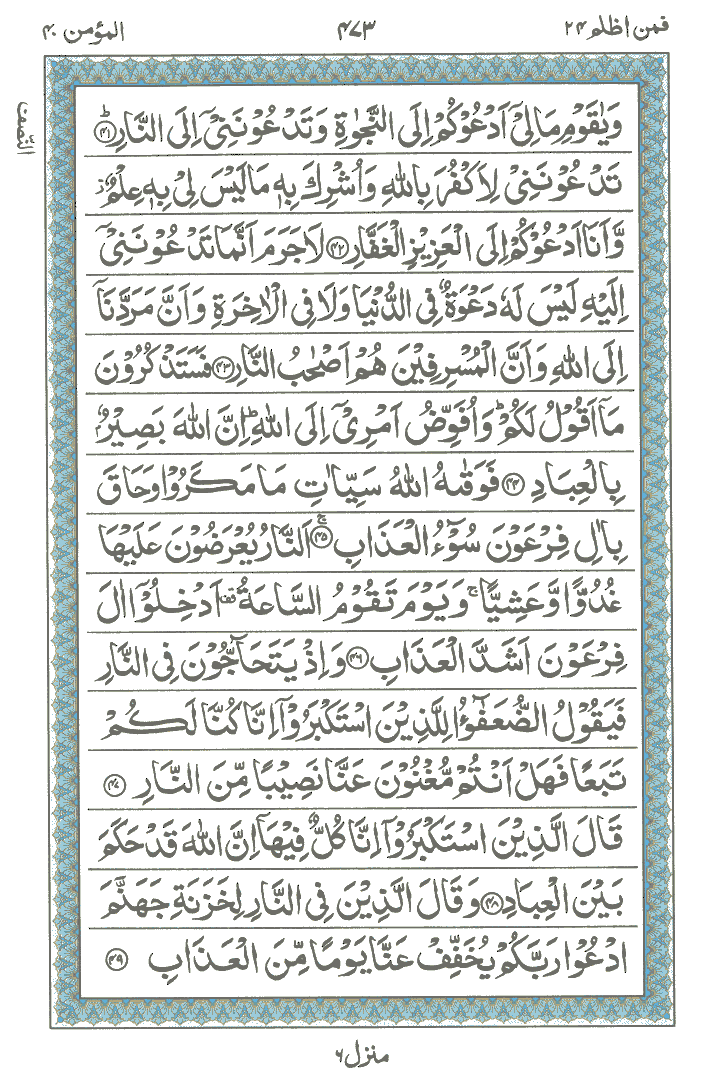 فمن اظلم ٢٤
٤٧٣
المؤمن ٤٠
النّصف
وَيٰقَوْمِ مَا لِىْۤ اَدْعُوْكُمْ اِلَى النَّجٰوةِ وَتَدْعُوْنَنِىْۤ اِلَى النَّارِؕ ۝٤١
تَدْعُوْنَنِىْ لِاَكْفُرَ بِاللّٰهِ وَاُشْرِكَ بِهٖ مَا لَيْسَ لِىْ بِهٖ عِلْمٌؗ
وَّاَنَا اَدْعُوْكُمْ اِلَى الْعَزِيْزِ الْغَفَّارِ ۝٤٢ لَا جَرَمَ اَنَّمَا تَدْعُوْنَنِىْۤ
اِلَيْهِ لَيْسَ لَهٗ دَعْوَةٌ فِى الدُّنْيَا وَلَا فِى الْاٰخِرَةِ وَاَنَّ مَرَدَّنَاۤ
اِلَى اللّٰهِ وَاَنَّ الْمُسْرِفِيْنَ هُمْ اَصْحٰبُ النَّارِ ۝٤٣ فَسَتَذْكُرُوْنَ
مَاۤ اَقُوْلُ لَكُمْؕ وَاُفَوِّضُ اَمْرِىْۤ اِلَى اللّٰهِؕ اِنَّ اللّٰهَ بَصِيْرٌۢ
بِالْعِبَادِ ۝٤٤ فَوَقٰىهُ اللّٰهُ سَيِّاٰتِ مَا مَكَرُوْا وَحَاقَ
بِاٰلِ فِرْعَوْنَ سُوْٓءُ الْعَذَابِۚ ۝٤٥ اَلنَّارُ يُعْرَضُوْنَ عَلَيْهَا
غُدُوًّا وَّعَشِيًّاۚ وَيَوْمَ تَقُوْمُ السَّاعَةُ قف اَدْخِلُوْۤا اٰلَ
فِرْعَوْنَ اَشَدَّ الْعَذَابِ ۝٤٦ وَاِذْ يَتَحَآجُّوْنَ فِى النَّارِ
فَيَقُوْلُ الضُّعَفٰٓؤُا لِلَّذِيْنَ اسْتَكْبَرُوْۤا اِنَّا كُنَّا لَكُمْ
تَبَعًا فَهَلْ اَنْتُمْ مُّغْنُوْنَ عَنَّا نَصِيْبًا مِّنَ النَّارِ ۝٤٧
قَالَ الَّذِيْنَ اسْتَكْبَرُوْۤا اِنَّا كُلٌّ فِيْهَاۤ اِنَّ اللّٰهَ قَدْ حَكَمَ
بَيْنَ الْعِبَادِ ۝٤٨ وَقَالَ الَّذِيْنَ فِى النَّارِ لِخَزَنَةِ جَهَنَّمَ
ادْعُوْا رَبَّكُمْ يُخَفِّفْ عَنَّا يَوْمًا مِّنَ الْعَذَابِ ۝٤٩
منزل ٦